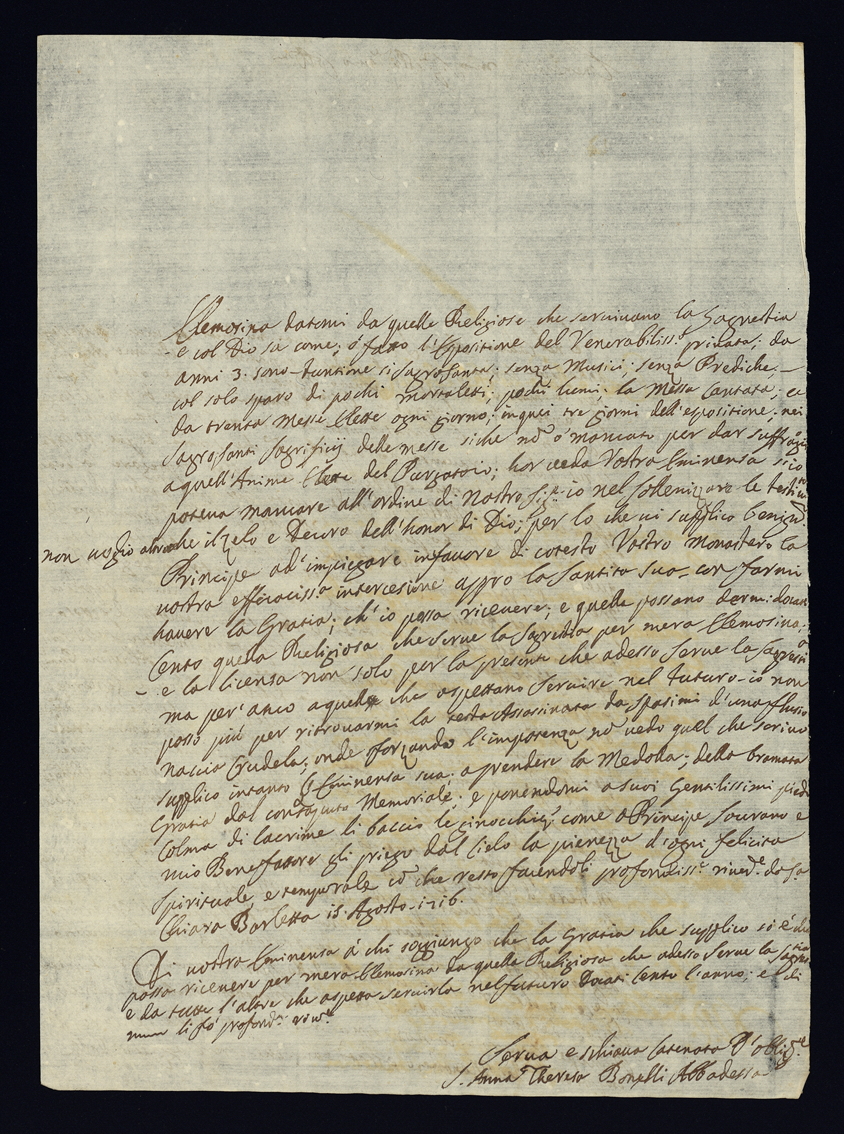 Elemosina datemi da quelle Religiose che servivano la Sagrestia
e col Dio sa come; ó fatto l'Espositione del Venerabiliss.º privata; da
anni 3. sono funtione si sagrosanta; senza Musici; senza Prediche;
col solo sparo di pochi mortaletti; pochi lumi; la Messa Cantata; e
da trenta messe lette ogni giorno; in quei tre giorni dell'espositione; nei
Sagrosanti Sagrificij delle messe siche nõ ó mancato per dar suffragij
a quell'Anime elette del Purgatoio; hor veda Vostra Eminensa s'io
poteva mancare all'ordine di Nostro Sig.re io nel sollennizzare le
non voglio altro che il zelo e Decoro dell'honor di Dio; per lo che vi supplico benign.º
Principe ad' impiegare in favore di cotesto Vostro Monastero la
vostra efficaciss.ª intercesione appro la Santita sua con farmi
havere la Gratia; ch'io possa ricevere; e quelle possano darmi docati
Cento quella Religiosa che serve la Sagrestia per mera Elemosina;
e la licensa non solo per la presente che adesso serve la Sagrestia
ma per'anco a quelle che aspettano servire nel futuro io non
posso piú per ritrovarmi la testa Assasinata da spasimi d'una flussio
naccia Crudele; onde sforzando l'impotenza nõ vedo quel che scrivo
supplico intanto l'Eminensa sua a prendere la Medolla; della bramata
Gratia dal congiunto Memoriale; e ponendomi a suoi Gentilissimi piedi
Colma di lacrime li baccio le ginocchia come a Principe Sovrano e
mio Benefattore gli priego dal Cielo la pienezza d'ogni felicita
spirituale, e temporale cõ che resto facendoli profondiss.ª river.ª da S.ª
Chiara Barletta 15. Agosto 1716.
Di vostra Eminensa á chi soggiungo che la Gratia che supplico si é che
possa ricevere per mera Elemosina da quella Religiosa che adesso serve la Sagrestia
e da tutte l'altre che aspetta servirla nel futuro Docati Cento l'anno; e di
li fó profond.ª river.ª
Serva e schiava Catenata D'oblig.e
S. Anna Theresa Bonelli Abbadessa